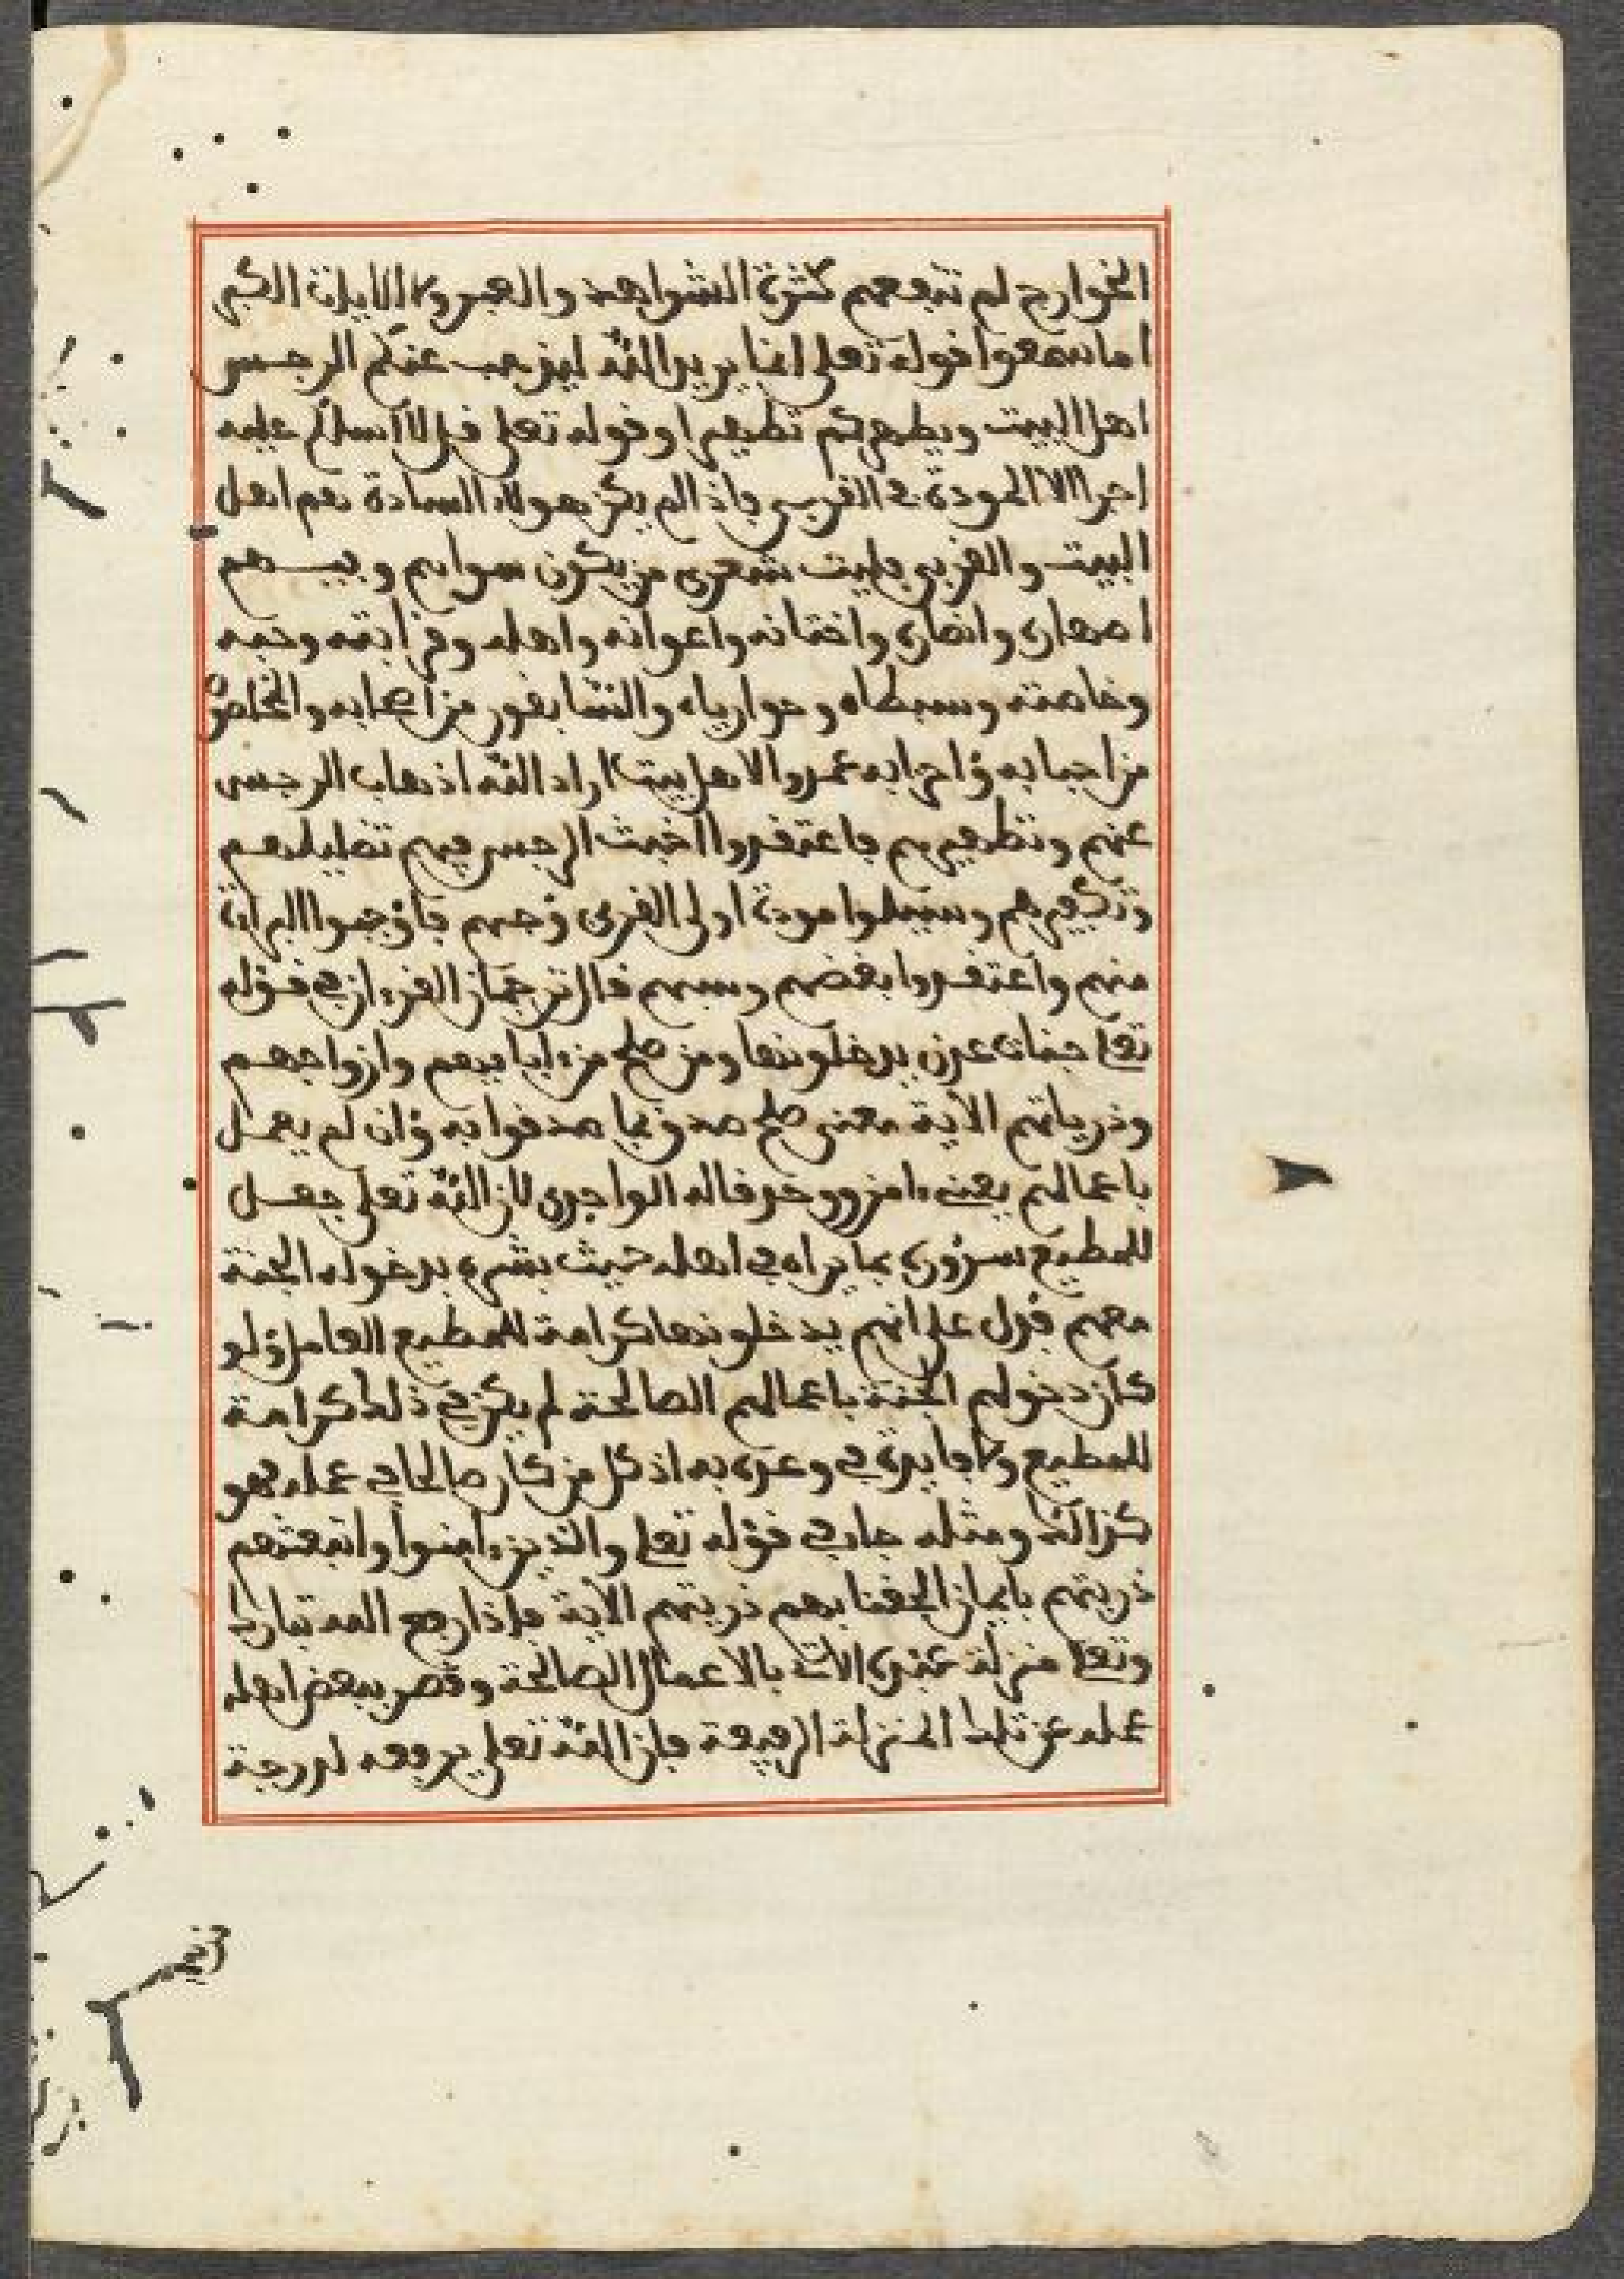 الخوارج لم تنفعهم كثرة الشواهد والعبر ولا الايات الكبر
اما سمعوا قوله تعلى انما يريد الله ليذهب عنكم الرجس
اهل البيت ويطهركم تطهيرا وقوله تعلى قل لا اسئلكم عليه
اجرا الا المودة في القربى فاذا لم يكن هولاء السادة هم اهل
البيت والقربى فليت شعري من يكون سواهم وفيهم
اصهاره وانصاره واختانه واعوانه واهله وقرابته وحبه
وخاصته وسبطاه وحوارياه والسابقون من اصحابه والخاص
من احبابه واحزابه عمدوا لاهل بيت اراد الله اذهاب الرجس
عنهم وتطهيرهم فاعتقدوا اخبث الرجس فيهم تضليلهم
وتكفيرهم وسئلوا مودة اولى القربى وحبهم فاوجبوا البراة
منهم واعتقدوا بغضهم وسبهم قال ترجمان القرءان في قوله
تعلى جنات عدن يدخلونها ومن صلح من ءابايهم وازواجهم
وذرياتهم الاية معنى صلح صدق بما صدقوا به وان لم يعمل
باعمالهم يعنى ءامن ووحد قاله الواحدى لان الله تعلى جعل
للمطيع سروره بما يراه في اهله حيث بشره بدخوله الجنة
معهم فدل على انهم يدخلونها كرامة للمطيع العامل ولو
كان دخولهم الجنة باعمالهم الصالحة لم يكن في ذلك كرامة
للمطيع ولا فايدة في وعده به اذ كل من كان صالحا في عمله فهو
كذالك ومثله جاء في قوله تعلى والذين ءامنوا واتبعتهم
ذريتهم بايمان الحقنا بهم ذريتهم الاية فاذا رفع الله تبارك
وتعلى منزلة عنده الاب بالاعمال الصالحة وقصر ببعض اهله
عمله عن تلك المنزلة الرفيعة فان الله تعلى يرفعه لدرجة